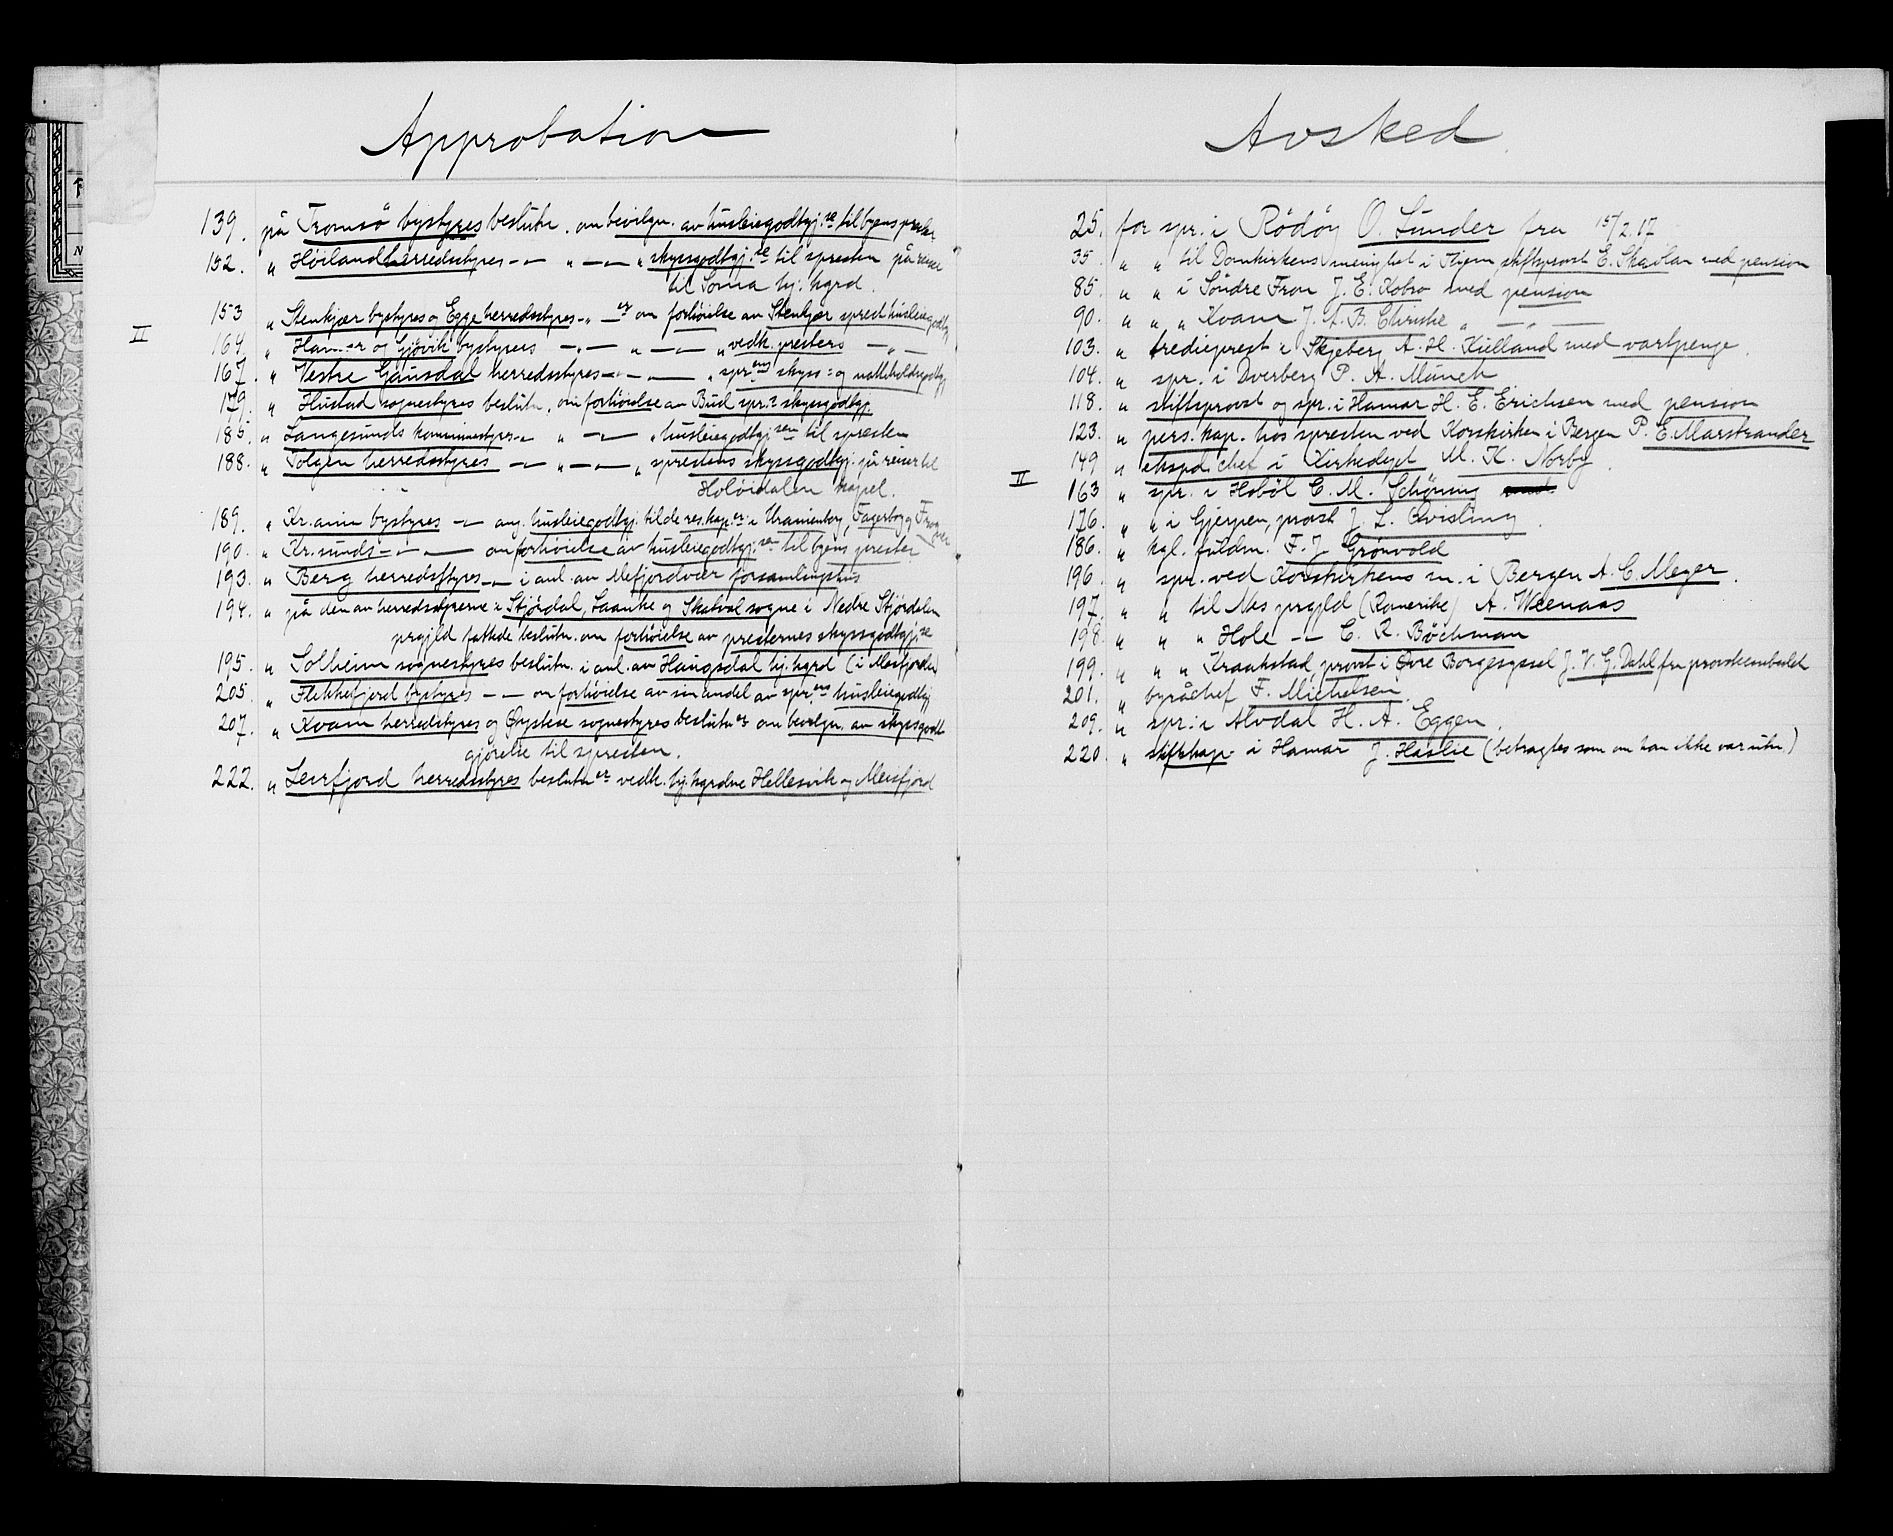 Approbation
139. på Tromsö bystyres beslutn. om bevilgn. av husleiegodtgj.se til byens prester
152. " Höiland herredsstyres — " — " skyssgodtgj.se til spresten på reise
til Soma hj. kgrd.
153 " Stenkjær bystyres og Egge herredsstyres — " — er om forhöielse av Stenkjær sprest husleiegodtgj
II
164 " Hamar og Gjövik bystyrers — " — " — " vedk. presters — " —
167. " Vestre Gausdal herredsstyres — " — " sprens skyss= og natteholdsgodtgj
179. " Hustad sognestyres beslutn. om forhöielse av Bud spr.s skyssgodtgj.
185. " Langesunds kommunestyres — " — " husleiegodtgj.sen til spresten
188. " Tolgen herredsstyres — " — " sprestens skyssgodtgj. på reiser til
Holöidalen kapel.
189. " Kr.ania bystyres — ang. husleiegodtgj. til de res.kap.er i Uranienborg, Fagerborg og Frogner
190. " Kr.sunds — " — om forhöielse av husleiegodtgj.sen til byens prester
193. " Berg herredsstyres — i anl. av Mefjordvær forsamlingshus
194. " på den av herredsstyrerne i Stjördal, Laanke og Skatval sogne i Nedre Stjördalen
prgjld fattede beslutn. om forhöielse av presternes skyssgodtgj.se
195. " Solheim sognestyres beslutn. i anl. av Haugsdal hj. kgrd (i Masfjorden)
205. " Flekkefjord bystyres — om forhöielse av sin andel av spr.ens husleiegodtgj
207. " Kvam herredsstyres og Øystese sognestyres beslutn.er om bevilgn. av skyssgodt
gjörelse til spresten.
222. " Leirfjord herredsstyres beslutn.er vedk. hj. kgrdne Hellesvik og Meisfjord
Avsked
25. for spr. i Rödöy O. Sunder fra 15/2.17
35. " " til Domkirkens menighet i Bergen stiftsprovst E. Skavlan med pension
85. " " i Söndre Fron J. E. Kobro med pension
90. " " " Kvam J. A. B. Christie " — " —
103. " trediepresest i Skjeberg A. H. Kielland med vartpenge.
104. " spr. i Dverberg P. A. Münch
118. " stiftsprovst og spr. i Hamar H. E. Erichsen med pension
123. " pers. kap. hos spresten ved Korskirken i Bergen P. E. Marstrander
149 " ekspd.chef i Kirkedept M. K. Norby.
II
163 " spr. i Hoböl C. M. Schöning
176. " " i Gjerpen, provst J. L. Qvisling.
186. " kgl. fuldm. F. J. Grönvold
196. " spr. ved Korskirkens m. i Bergen A. C. Meyer.
197. " " til Nes prgjld (Romerike) A. Weenaas
198. " " " Hole — C. R. Böckman
199. " " " Kraakstad, provst i Øvre Borgesyssel J. V. G. Dahl fra provsteembedet
201. " byråchef F. Michelsen.
209. " spr. i Alvdal H. A. Eggen.
220. " stiftskap. i Hamar J. Haslie (betragtes som om han ikke var utn.)